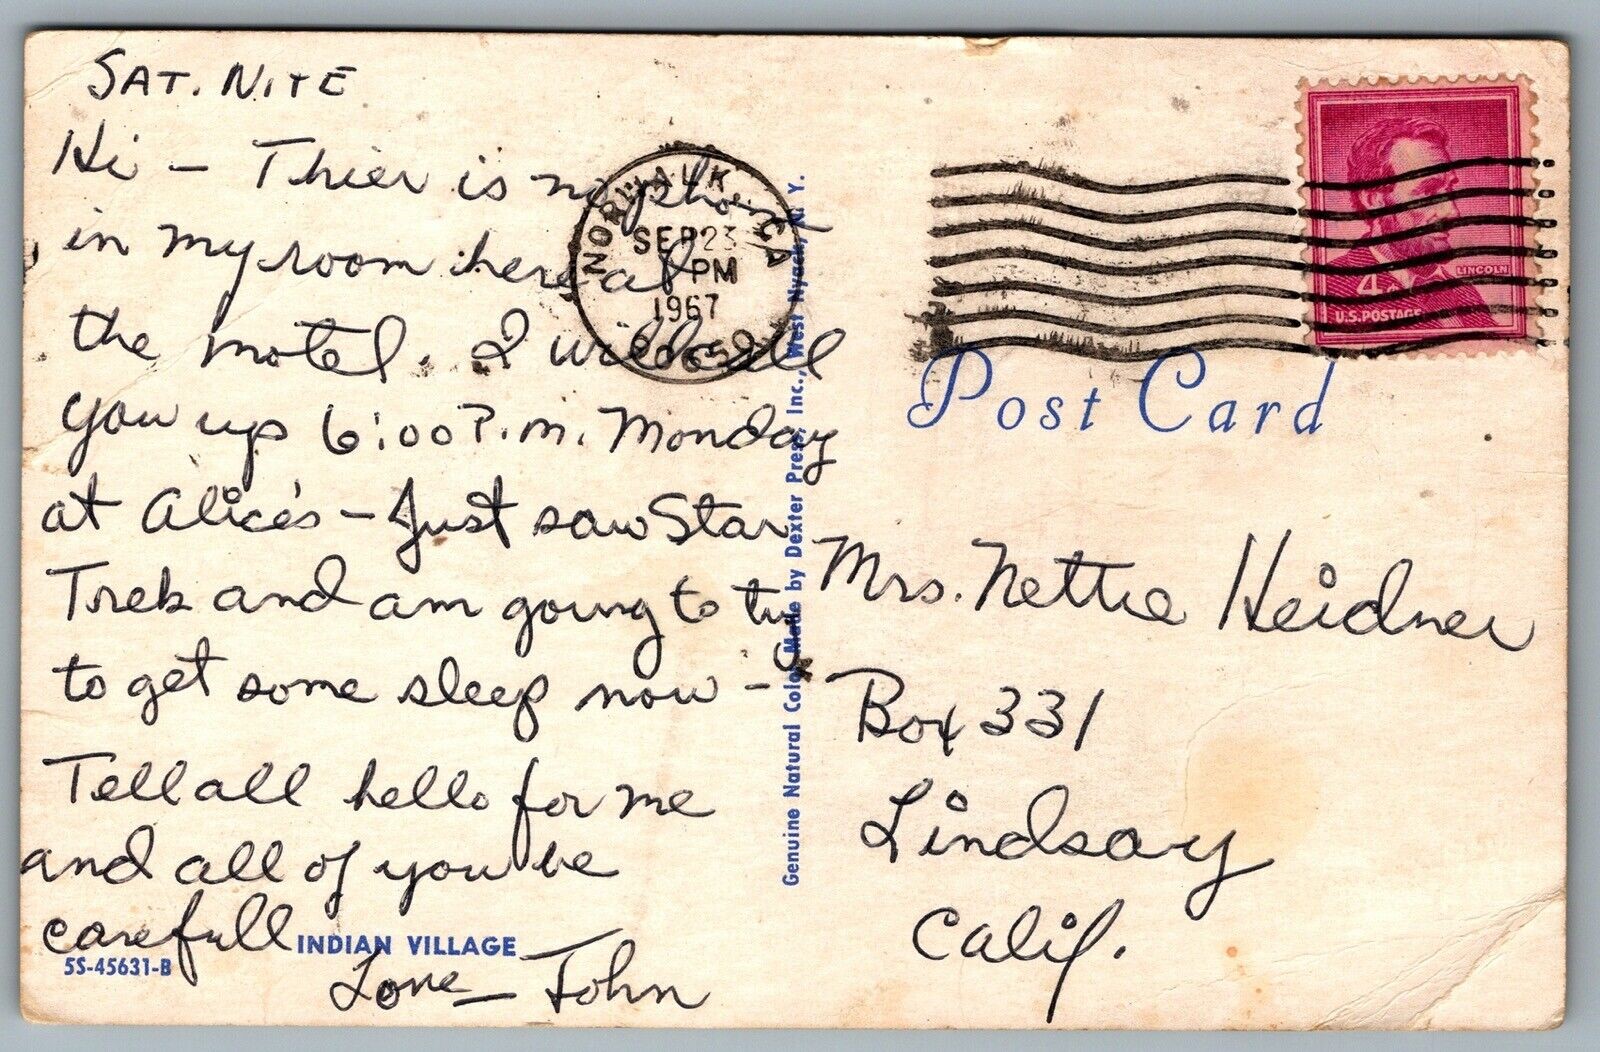 SAT. NITE
Hi – Thier is no phone
in my room here at
the motel. I will call
you up 6:00 P.m. Monday
at Alice's – Just saw Star
Trek and am going to try
to get some sleep now –
Tell all hello for me
and all of you be
carefull
Love – John
INDIAN VILLAGE
5S-45631-B
Genuine Natural Color Made by Dexter Press, Inc., West Nyack, N. Y.
NORWALK, CA
SEP 23
PM
1967
LINCOLN
4¢
U.S. POSTAGE
Post Card
Mrs. Nettie Heidner
Box 331
Lindsay
Calif.